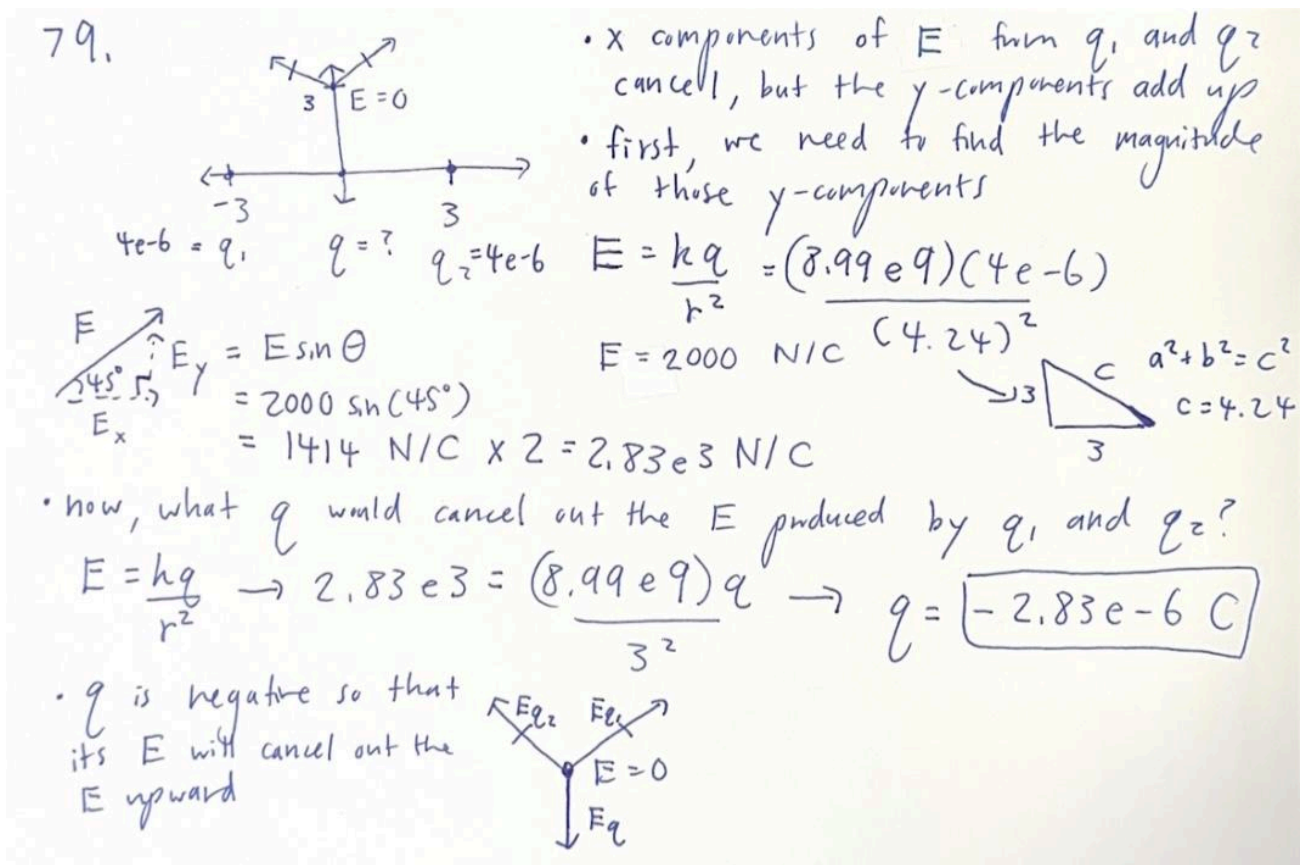 79.
3 E = 0
-3 3
4e-6 = q₁ q = ? q₂ = 4e-6
• x components of E from q₁ and q₂
cancell, but the y-components add up
• first, we need to find the magnitude
of those y-components
E = kq/r² = (8.99e9)(4e-6)/(4.24)²
E = 2000 N/C
3 c a² + b² = c²
c = 4.24
3
E
45° E_y = E sin θ
E_x
= 2000 sin(45°)
= 1414 N/C x 2 = 2.83e3 N/C
• now, what q would cancel out the E produced by q₁ and q₂?
E = kq/r² → 2.83e3 = (8.99e9)q/3² → q = -2.83e-6 C
• q is negative so that
its E will cancel out the
E upward
E_q₂ E_q₁
E = 0
E_q